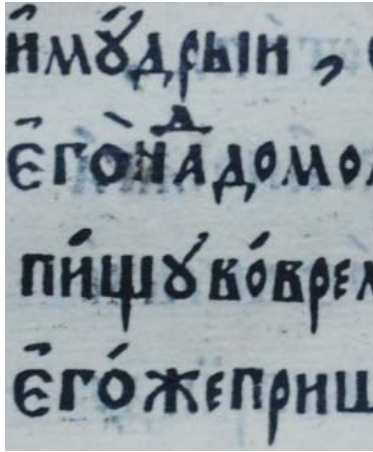 и҆мꙋ́дрыи ,
є҆го̀наⷣдомо
пи́щꙋ́во́вре
є҆го́жепри